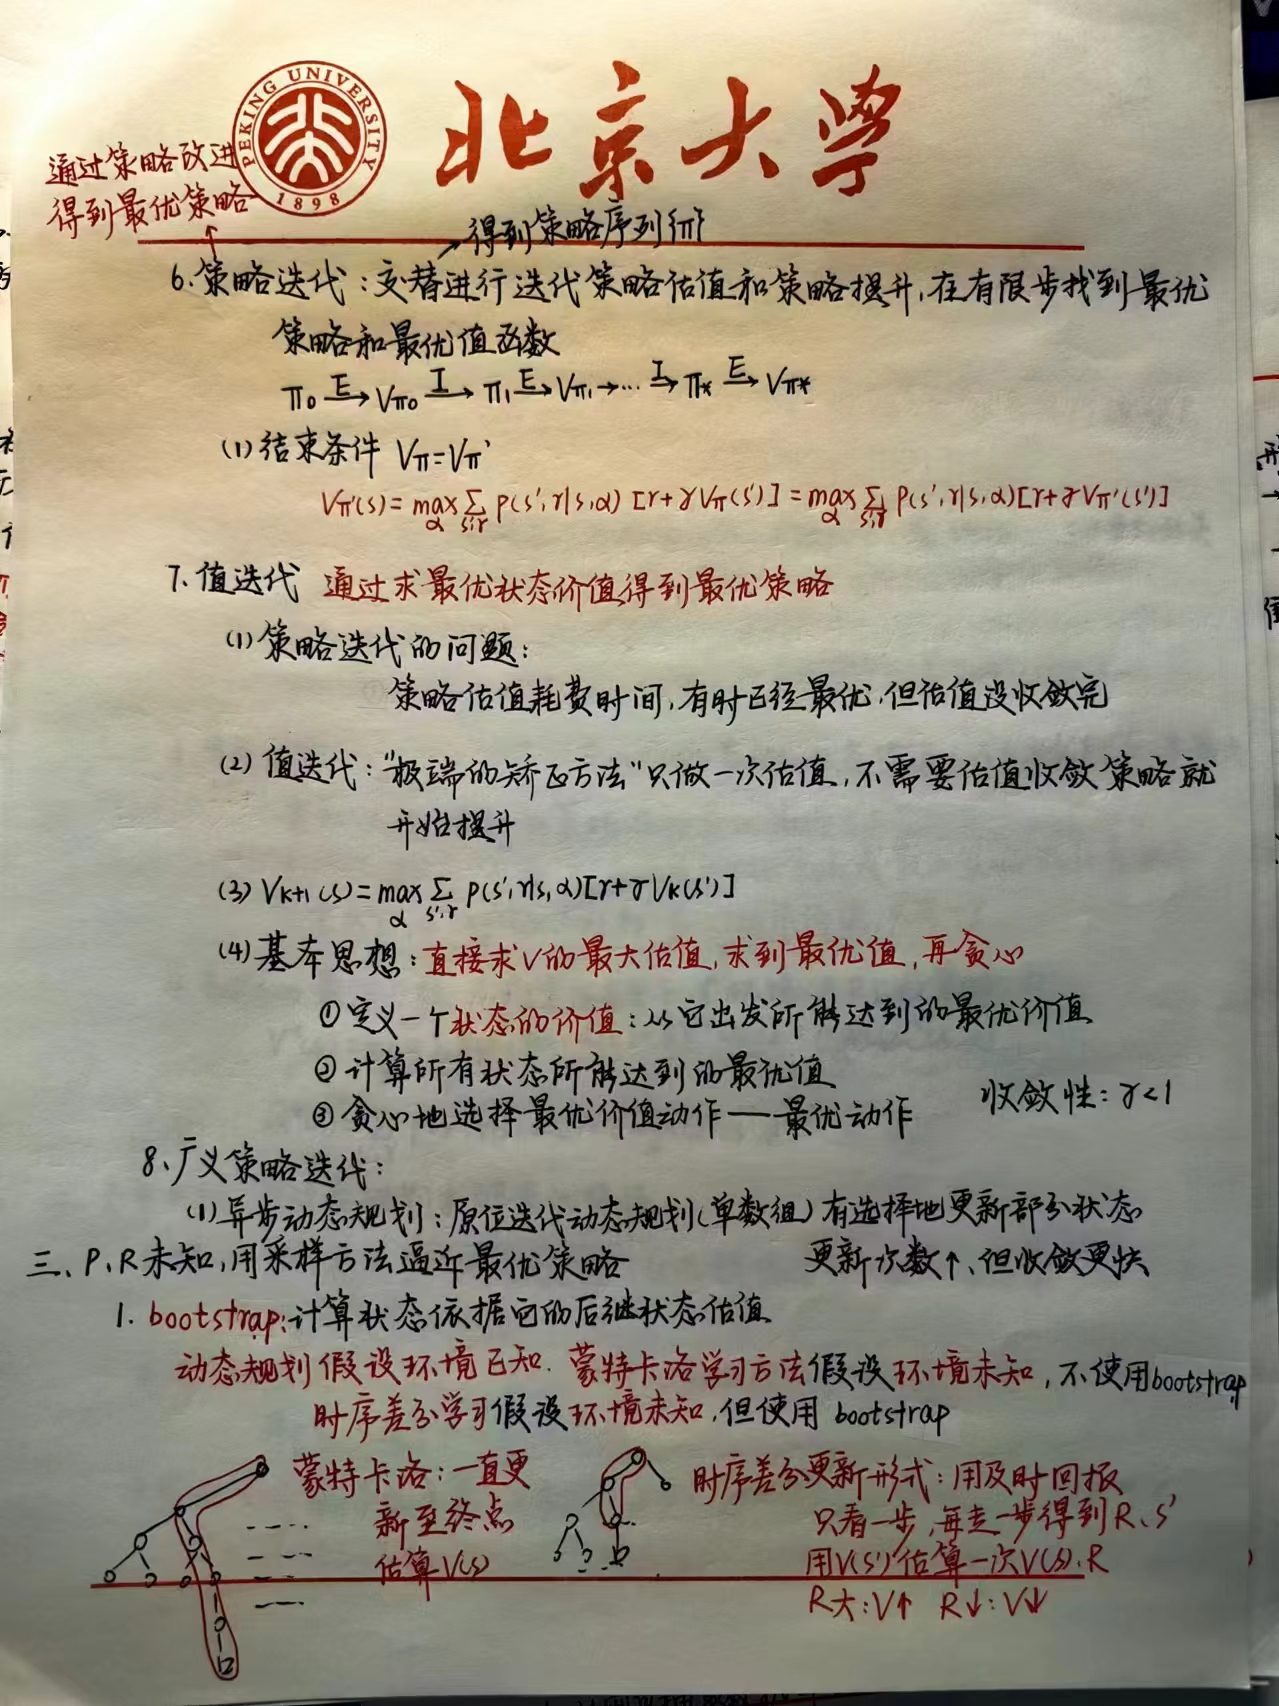 PEKING UNIVERSITY
1898
北京大学
通过策略改进
得到最优策略
得到策略序列{π}
6.策略迭代：交替进行迭代策略估值和策略提升，在有限步找到最优
策略和最优值函数
π0 E→ Vπ0 I→ π1 E→ Vπ1 →… I→ π* E→ Vπ*
(1)结束条件 Vπ=Vπ'
Vπ'(s)=max_a Σ_{s',r} P(s',r|s,a) [r+γVπ(s')] = max_a Σ_{s',r} P(s',r|s,a)[r+γVπ'(s')]
7.值迭代 通过求最优状态价值得到最优策略
(1)策略迭代的问题：
策略估值耗费时间，有时已经最优，但估值没收敛完
(2) 值迭代："极端的矫正方法"只做一次估值，不需要估值收敛策略就
开始提升
(3) Vk+1(s)=max_a Σ_{s',r} P(s',r|s,a)[r+γVk(s')]
(4)基本思想：直接求V的最大估值，求到最优值，再贪心
①定义一个状态的价值：从它出发所能达到的最优价值
②计算所有状态所能达到的最优值
③贪心地选择最优价值动作——最优动作
收敛性：γ<1
8、广义策略迭代：
(1)异步动态规划：原位迭代动态规划(单数组)有选择地更新部分状态
更新次数↑，但收敛更快
三、P、R未知，用采样方法逼近最优策略
1. bootstrap:计算状态依据它的后继状态估值
动态规划假设环境已知. 蒙特卡洛学习方法假设环境未知，不使用bootstrap
时序差分学习假设环境未知，但使用 bootstrap
蒙特卡洛：一直更
新至终点
估算V(s)
时序差分更新形式：用及时回报
只看一步，每走一步得到R、S'
用V(s')估算一次V(s)、R
R大：V↑ R↓：V↓